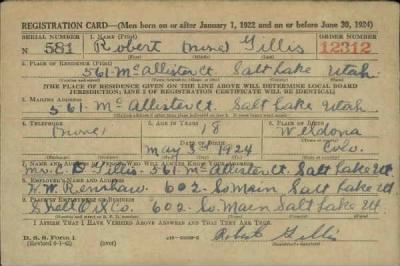 REGISTRATION CARD—(Men born on or after January 1, 1922 and on or before June 30, 1924)
SERIAL NUMBER 1. NAME (Print) ORDER NUMBER
N 581 Robert (none) Gillis 12312
(First) (Middle) (Last)
2. PLACE OF RESIDENCE (Print)
561 McAllister Ct. Salt Lake Utah
[THE PLACE OF RESIDENCE GIVEN ON THE LINE ABOVE WILL DETERMINE LOCAL BOARD
JURISDICTION; LINE 2 OF REGISTRATION CERTIFICATE WILL BE IDENTICAL]
3. MAILING ADDRESS
561 McAllister Ct. Salt Lake Utah
4. TELEPHONE 5. AGE IN YEARS 6. PLACE OF BIRTH
(none) 18 Weldona
DATE OF BIRTH
May 3rd 1924 Colo.
7. NAME AND ADDRESS OF PERSON WHO WILL ALWAYS KNOW YOUR ADDRESS
Mrs. C. Gillis - 561 McAllister Ct. Salt Lake Ut
8. EMPLOYER'S NAME AND ADDRESS
W. W. Renshaw 602 - So Main, Salt Lake Ut
9. PLACE OF EMPLOYMENT OR BUSINESS
Shell Oil Co. 602 - So. Main Salt Lake Ut
I AFFIRM THAT I HAVE VERIFIED ABOVE ANSWERS AND THAT THEY ARE TRUE.
D. S. S. Form 1
Robert Gillis